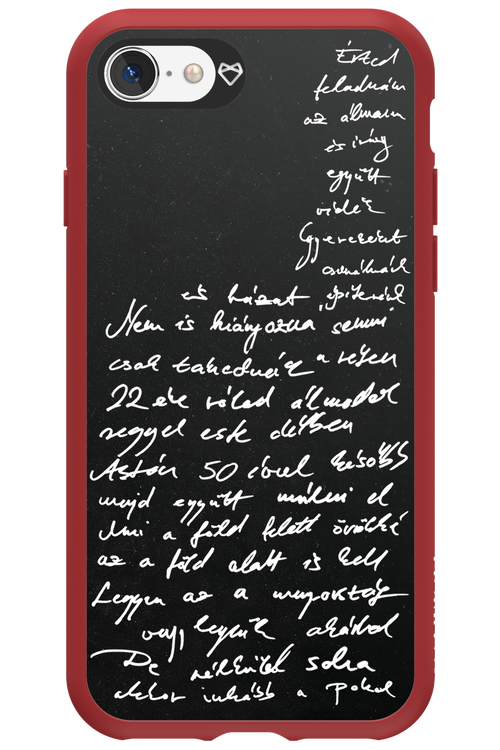 Érted
feladnám
az álmaim
és így
együtt
Gyerekeket
csinálnánk
és házat építenénk
Nem is hiányozna semmi
csak
22 éve rólad álmodok
reggel este délben
Aztán 50 évvel később
majd együtt múlni el
Ami a föld felett örökké
az a föld alatt is kell
Legyen az a mennyország
vagy legyünk akárhol
De nélküled soha
akkor inkább a pokol